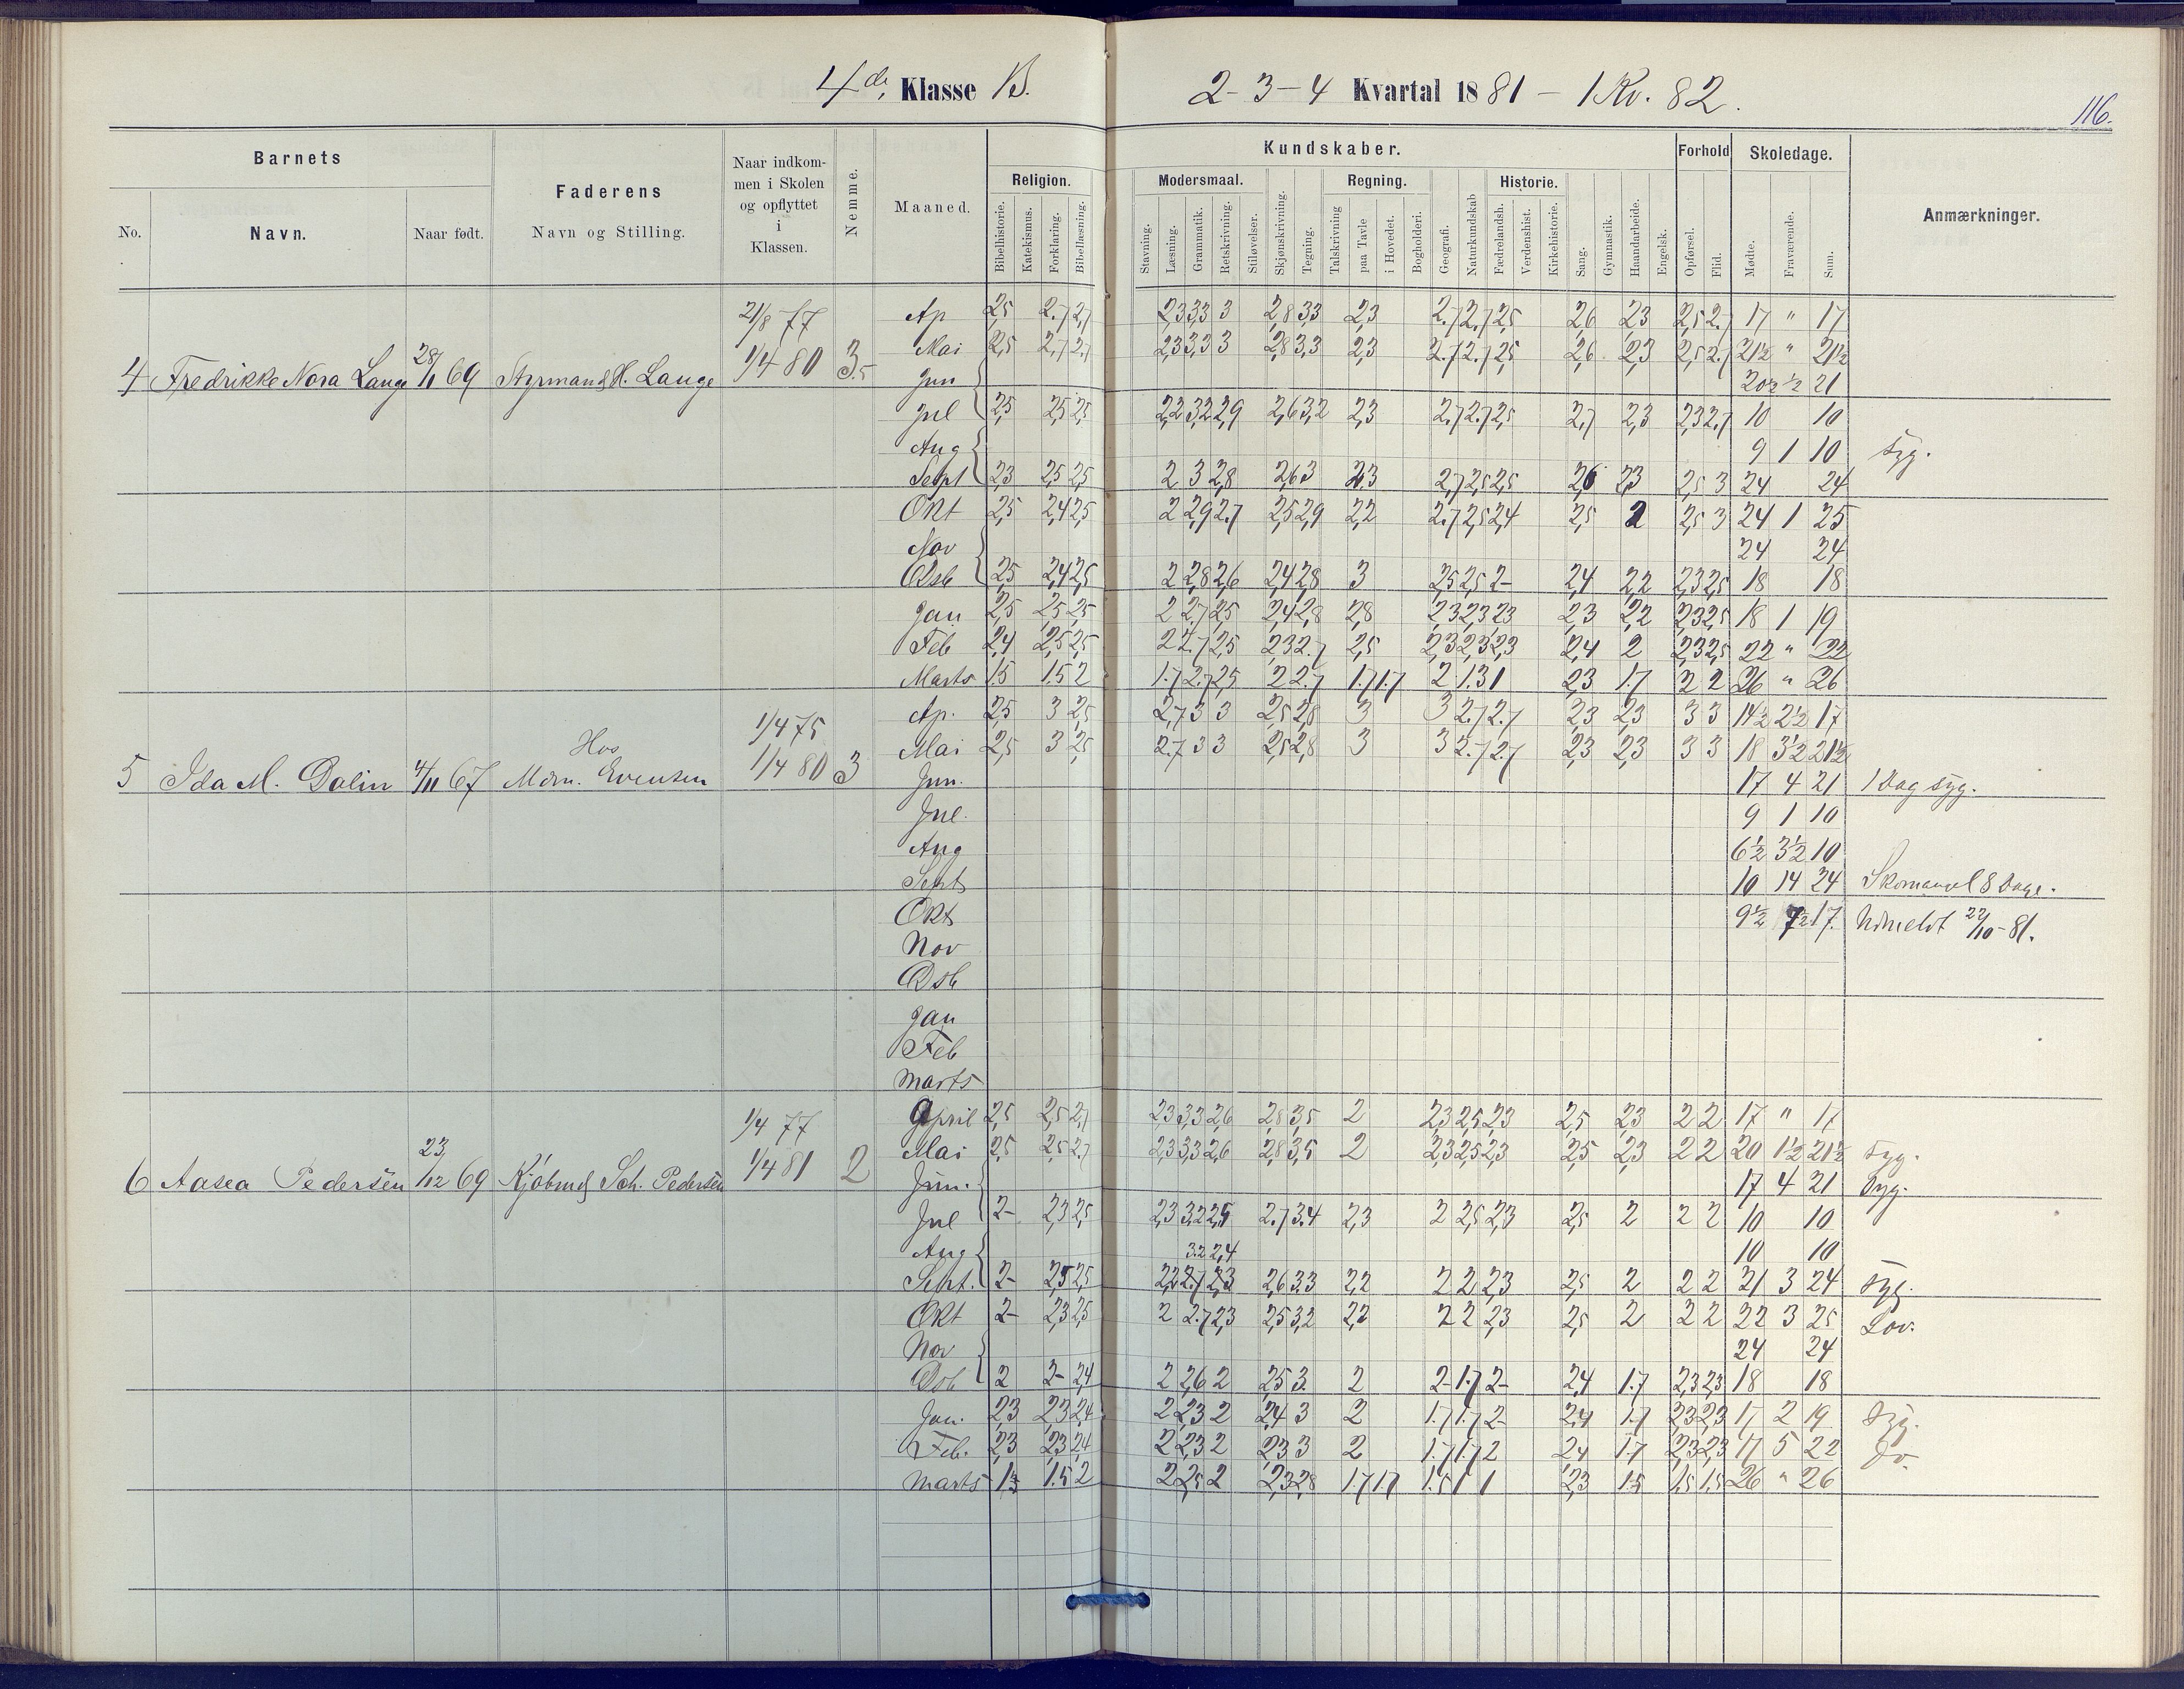 4de Klasse B.
2-3-4 Kvartal 1881 - 1 Kv. 82.
116.
Barnets
No.
Navn.
Naar født.
Faderens
Navn og Stilling.
Naar indkom-
men i Skolen
og opflyttet
i
Klassen.
Nemme.
Maaned.
Kundskaber.
Religion.
Bibelhistorie.
Katekismus.
Forklaring.
Bibellæsning.
Modersmaal.
Stavning.
Læsning.
Grammatik.
Retskrivning.
Stiløvelser.
Skjønskrivning.
Tegning.
Regning.
Talskrivning
paa Tavle
i Hovedet.
Bogholderi.
Geografi.
Naturkundskab
Historie.
Fædrelandsh.
Verdenshist.
Kirkehistorie.
Sang.
Gymnastik.
Haandarbeide.
Engelsk.
Forhold
Opførsel.
Flid.
Skoledage.
Mødte.
Fraværende.
Sum.
Anmærkninger.
4 Fredrikke Nora Lange 28/1 69 Styrmand H. Lange 21/8 77 1/4 80 3.5
Ap 2,5 2.7 2,7 2,3 3,3 3 2,8 3,3 2,3 2.7 2.7 2,5 2,6 2,3 2,5 2.7 17 " 17
Mai 2,5 2,7 2.7 2,3 3,3 3 2,8 3,3 2,3 2.7 2.7 2,5 2,6 2,3 2,5 2.7 21½ " 21½
Jun 20½ ½ 21
Jul 2,5 2,5 2,5 2,2 3,2 2,9 2,6 3,2 2,3 2,7 2.7 2,5 2,7 2,3 2,3 2.7 10 10
Aug 9 1 10 Syg.
Sept 2,3 2,5 2,5 2 3 2,8 2,6 3 2.3 2,7 2,5 2,5 2,6 2,3 2,5 3 24 24
Okt 2,5 2,4 2,5 2 2,9 2.7 2,5 2,9 2,2 2.7 2,5 2,4 2,5 2 2,5 3 24 1 25
Nov 24 24
Dsb 2,5 2,4 2,5 2 2,8 2,6 2,4 2,8 3 2,5 2,5 2- 2,4 2,2 2,3 2,5 18 18
Jan 2,5 2,5 2,5 2 2,7 2,5 2,4 2,8 2,8 2,3 2,3 2,3 2,3 2,2 2,3 2,5 18 1 19
Feb 2,4 2,5 2,5 2 2.7 2,5 2,3 2.7 2,5 2,3 2,3 2,3 2,4 2 2,3 2,5 22 " 22
Marts 1.5 1.5 2 1.7 2.7 2,5 2 2.7 1.7 1.7 2 1.3 1 2,3 1.7 2 2 26 " 26
5 Ida M. Dalin 4/11 67 Hos Mdm. Evensen 1/4 75 1/4 80 3
Ap. 2,5 3 2,5 2,7 3 3 2,5 2,8 3 3 2.7 2.7 2,3 2,3 3 3 14½ 2½ 17
Mai 2,5 3 2,5 2.7 3 3 2,5 2,8 3 3 2.7 2.7 2,3 2,3 3 3 18 3½ 21½
Jun. 17 4 21 1 Dag syg.
Jul. 9 1 10
Aug 6½ 3½ 10
Septs 10 14 24 Skomangel 8 Dage.
Okts 9½ 7½ 17. Udmeldt 22/10-81.
Nov
Dsb
Jan
Feb
Marts
6 Aasea Pedersen 23/12 69 Kjøbmd Sch. Pedersen 1/4 77 1/4 81 2
April 2,5 2,5 2,7 2,3 3,3 2,6 2,8 3,5 2 2,3 2,5 2,3 2,5 2,3 2 2 17 " 17
Mai 2,5 2,5 2.7 2,3 3,3 2,6 2,8 3,5 2 2,3 2,5 2,3 2,5 2,3 2 2 20 1½ 21½ Syg.
Jun. 17 4 21 Syg.
Jul 2- 2,3 2,5 2,3 3,2 2,5 2.7 3.4 2,3 2 2,5 2,3 2,5 2 2 2 10 10
Aug 3.2 2,4 10 10
Sept. 2- 2,5 2,5 2,2 2.7 2,3 2,6 3.3 2,2 2 2 2,3 2,5 2 2 2 21 3 24 Syg.
Okt 2- 2,3 2,5 2 2.7 2,3 2,5 3,2 2,2 2 2 2,3 2,5 2 2 2 22 3 25 Lov.
Nov 24 24
Dsb 2 2- 2,4 2 2,6 2 2,5 3. 2 2- 1.7 2- 2,4 1.7 2,3 2,3 18 18
Jan. 2,3 2,3 2,4 2 2,3 2 2,4 3 2 1.7 1.7 2- 2,4 1.7 2,3 2,3 17 2 19 Syg.
Feb. 2,3 2,3 2,4 2 2,3 2 2,3 3 2 1.7 1.7 2 2,4 1.7 2,3 2,3 17 5 22 Do.
Marts 1.5 2 2 2,5 2 2,3 2,8 1.7 1.7 1.5 1 1 2,3 1.5 1,5 1,5 26 " 26